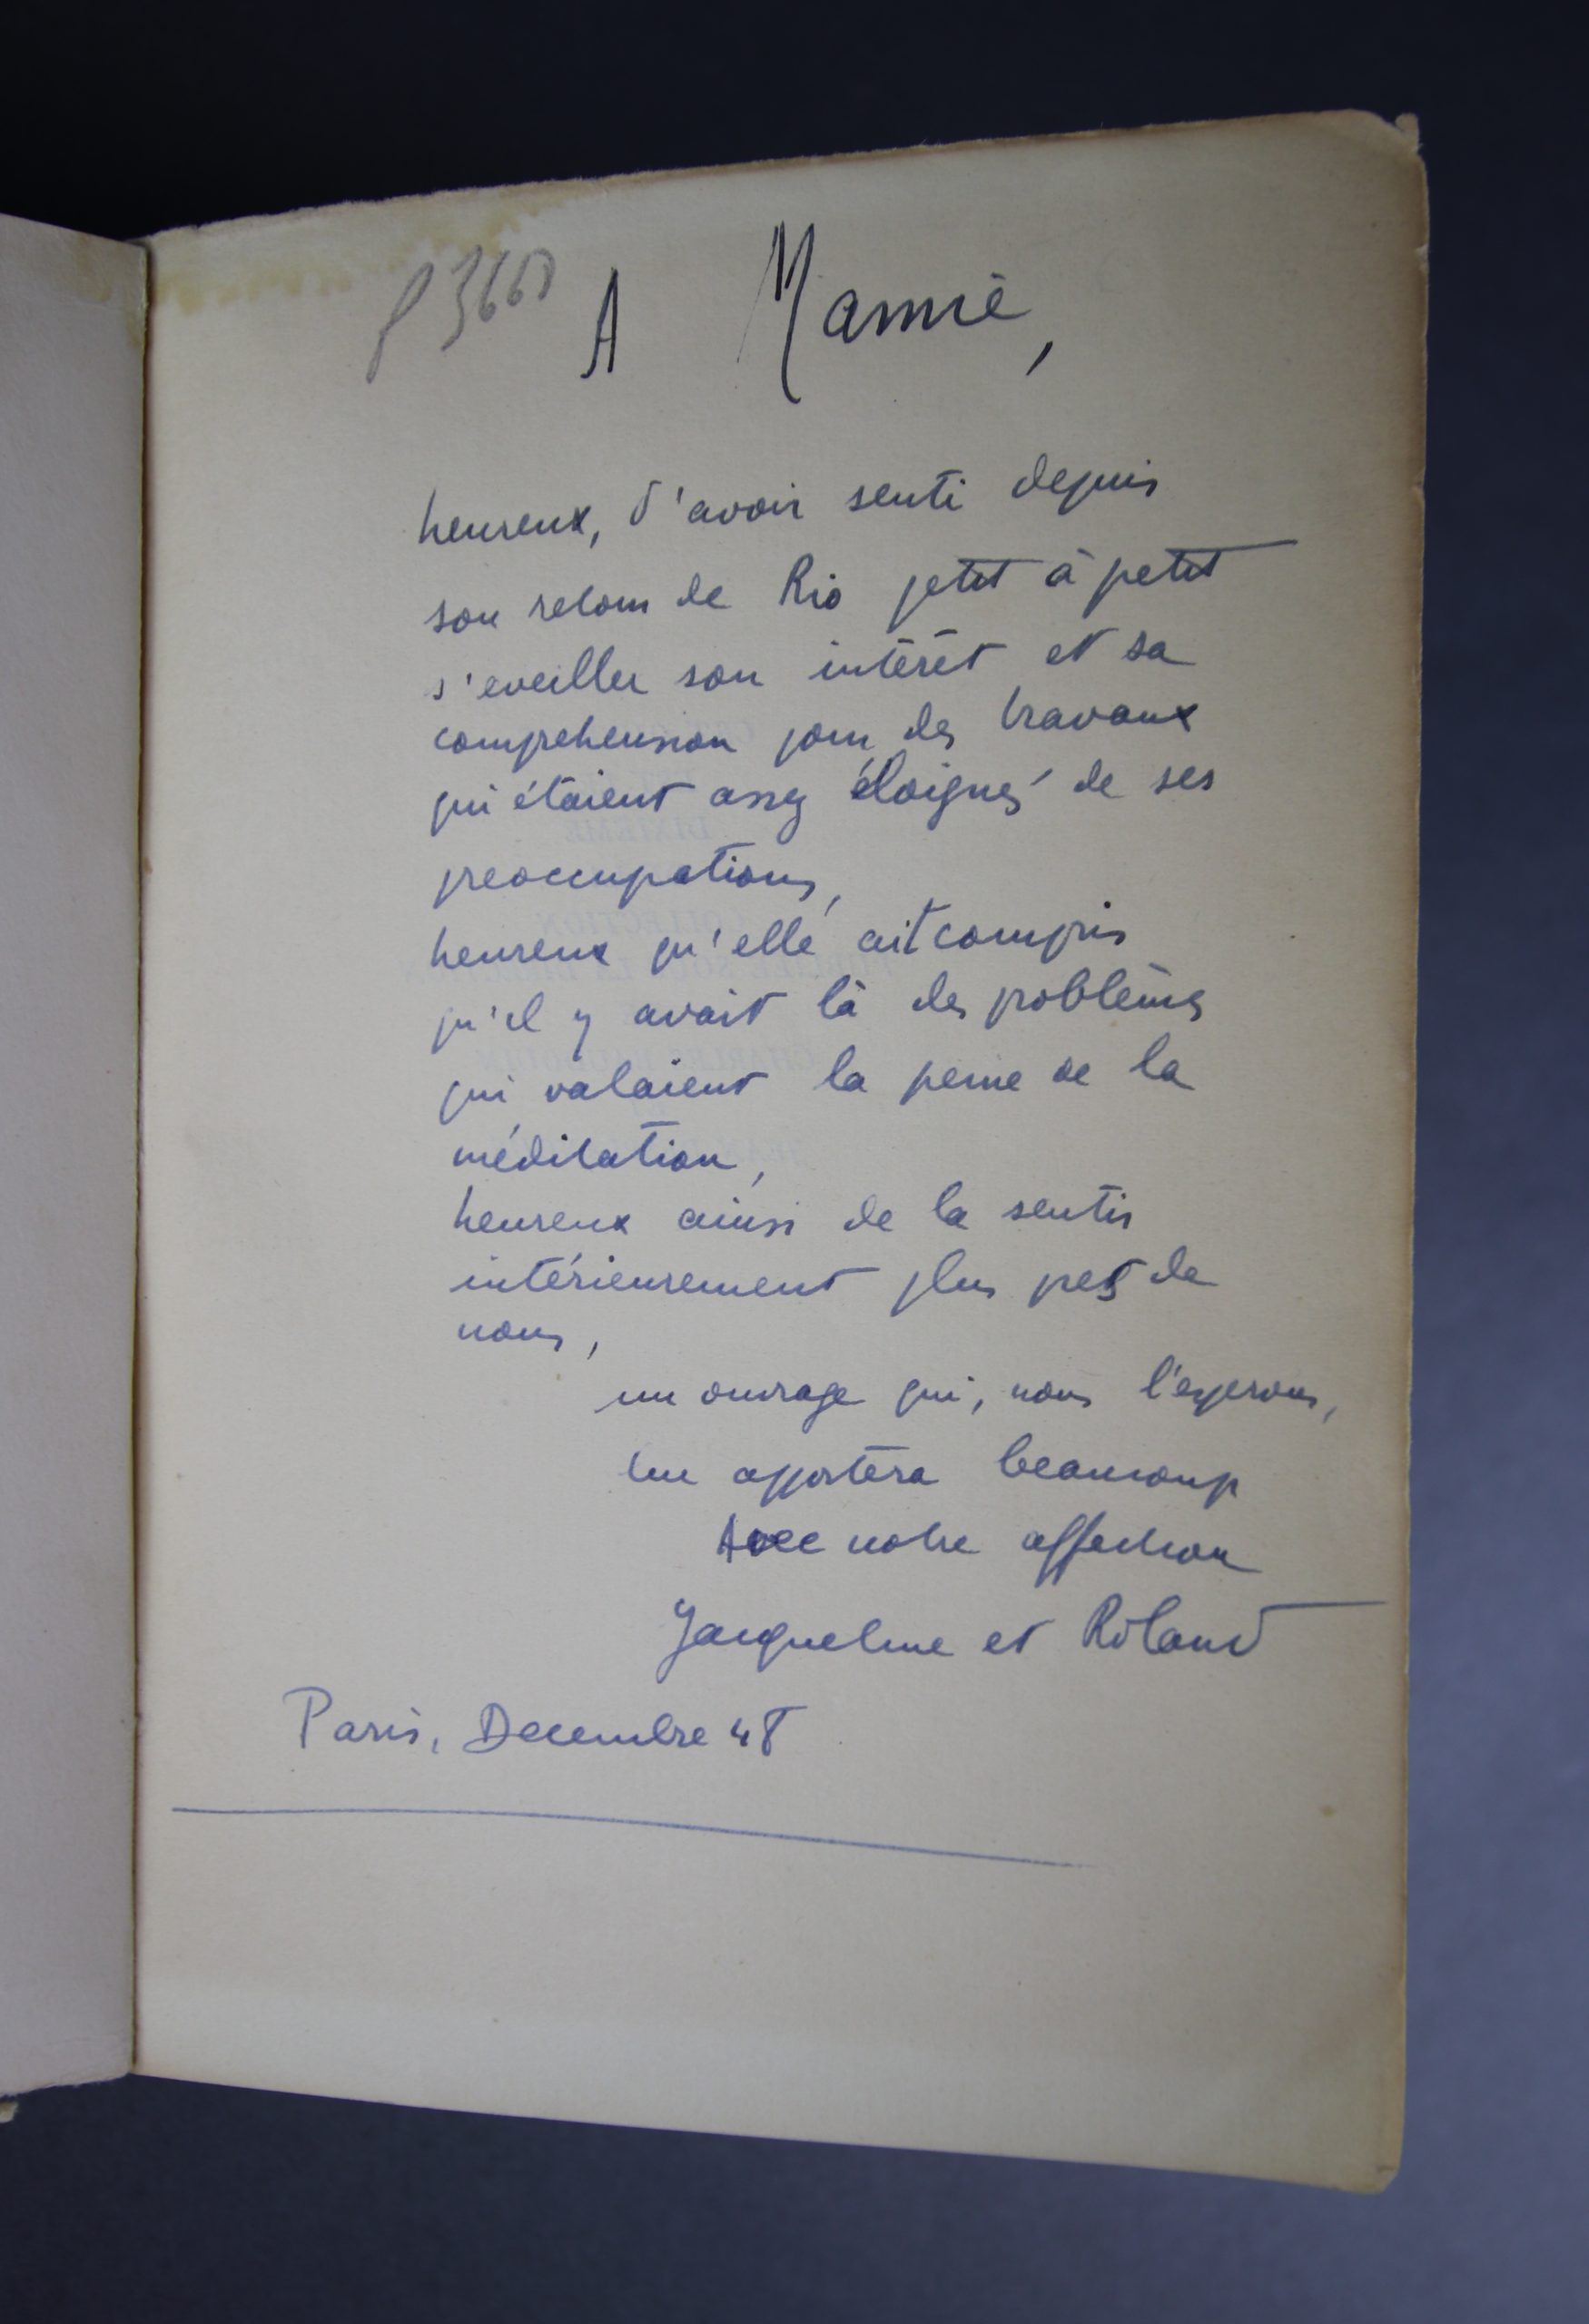 A Mamie,
heureux, d'avoir senti depuis
son retour de Rio petit à petit
s'eveiller son intérêt et sa
comprehension pour des travaux
qui étaient assez éloignés de ses
preoccupations,
heureux qu'elle ait compris
qu'il y avait là des problèmes
qui valaient la peine de la
méditation,
heureux ainsi de la sentir
intérieurement plus près de
nous,
un ouvrage qui, nous l'esperons,
lui apportera beaucoup
Avec notre affection
Jacqueline et Roland
Paris, Decembre 48